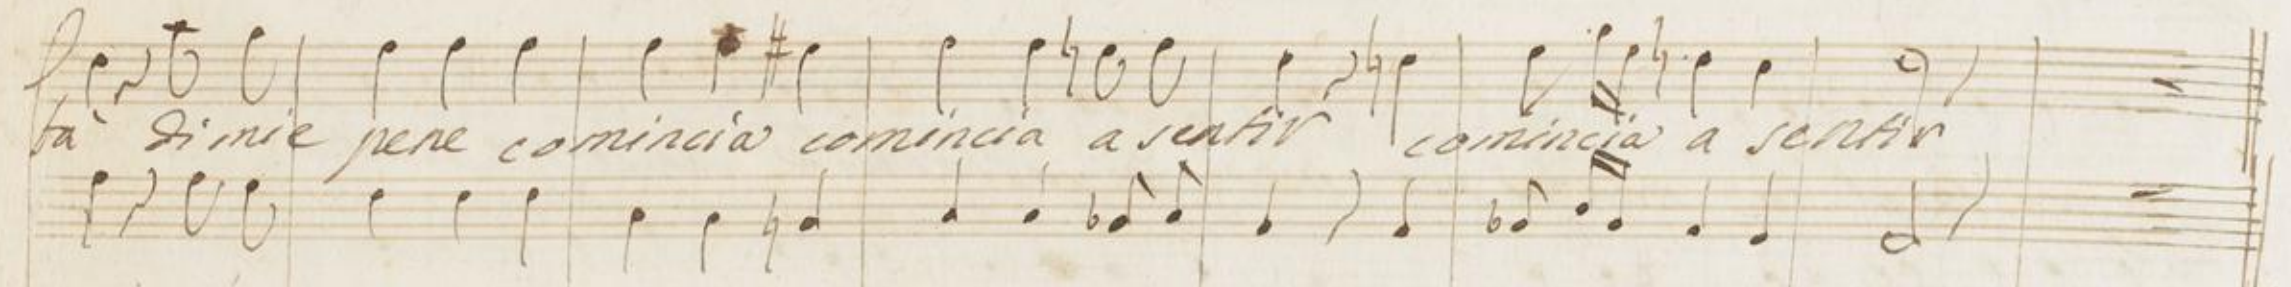 tà di mie pene comincia comincia a sentir comincia a sentir